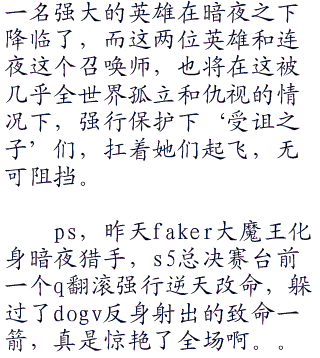 一名强大的英雄在暗夜之下
降临了，而这两位英雄和连
夜这个召唤师，也将在这被
几乎全世界孤立和仇视的情
况下，强行保护下‘受诅之
子’们，扛着她们起飞，无
可阻挡。
ps，昨天faker大魔王化
身暗夜猎手，s5总决赛台前
一个q翻滚强行逆天改命，躲
过了dogv反身射出的致命一
箭，真是惊艳了全场啊。。